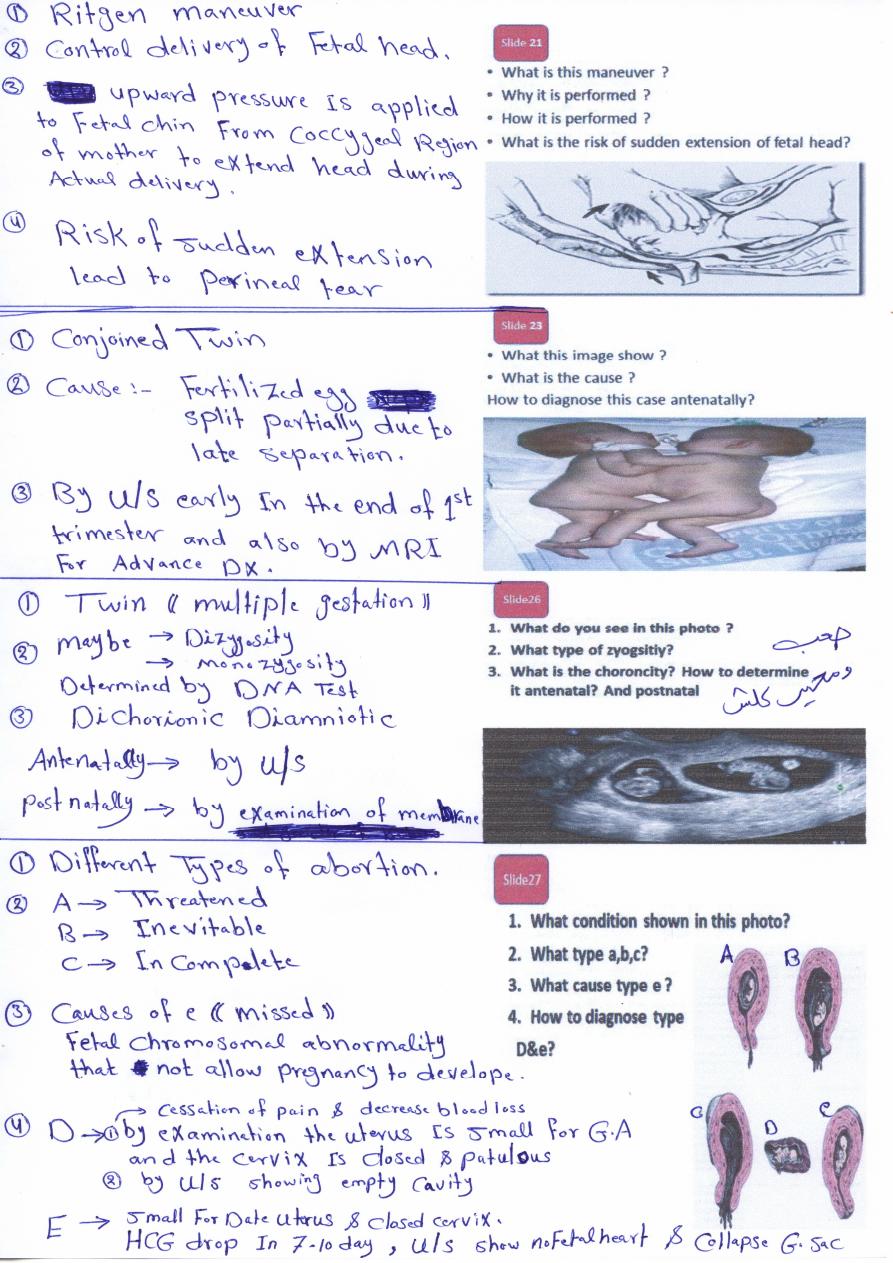 ① Ritgen maneuver
② Control delivery of Fetal head.
③ upward pressure Is applied
to Fetal chin From Coccygeal Region
of mother to extend head during
Actual delivery.
④ Risk of sudden extension
lead to perineal tear
Slide 21
• What is this maneuver ?
• Why it is performed ?
• How it is performed ?
• What is the risk of sudden extension of fetal head?
① Conjoined Twin
② Cause :- Fertilized egg
split partially due to
late separation.
③ By U/s early In the end of 1st
trimester and also by MRI
For Advance DX.
Slide 23
• What this image show ?
• What is the cause ?
How to diagnose this case antenatally?
① Twin (( multiple gestation ))
② maybe → Dizygosity
→ monozygosity
Determined by DNA Test
③ Dichorionic Diamniotic
Antenatally → by U/s
Post natally → by examination of membrane
Slide26
1. What do you see in this photo ?
2. What type of zyogsitiy?
3. What is the choroncity? How to determine
it antenatal? And postnatal
① Different Types of abortion.
② A → Threatened
B → Inevitable
C → In Compelete
③ Causes of e (( missed ))
Fetal Chromosomal abnormality
that not allow pregnancy to develope.
④ → Cessation of pain & decrease blood loss
D → ① by examination the uterus Is small for G.A
and the cervix Is closed & patulous
② by U/s showing empty cavity
E → Small For Date uterus & closed cervix.
HCG drop In 7-10 day , U/s show no Fetal heart & Collapse G. sac
Slide27
1. What condition shown in this photo?
2. What type a,b,c?
3. What cause type e ?
4. How to diagnose type
D&e?
A B
C D e